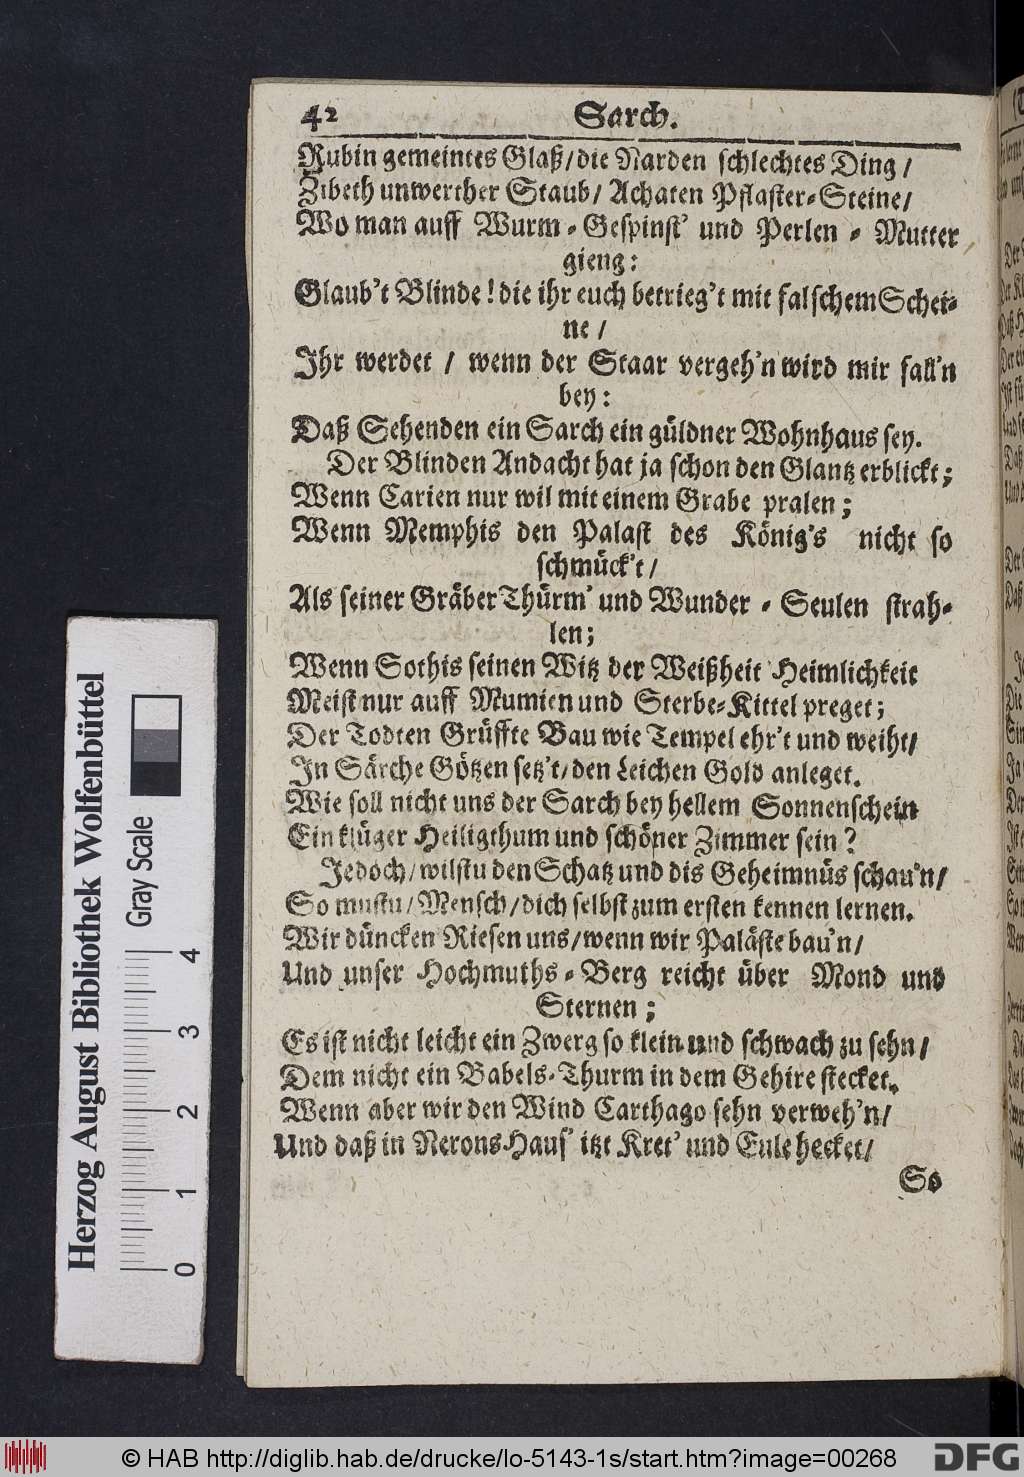 42 Sarch.
Rubin gemeintes Glaß/die Narden schlechtes Ding/
Zibeth unwerther Staub/ Achaten Pflaster-Steine/
Wo man auff Wurm-Gespinst' und Perlen-Mutter
gieng:
Glaub't Blinde! die ihr euch betrieg't mit falschem Schei-
ne/
Ihr werdet / wenn der Staar vergeh'n wird mir fall'n
bey:
Daß Sehenden ein Sarch ein güldner Wohnhaus sey.
Der Blinden Andacht hat ja schon den Glantz erblickt;
Wenn Carien nur wil mit einem Grabe pralen;
Wenn Memphis den Palast des König's nicht so
schmück't/
Als seiner Gräber Thürm' und Wunder-Seulen strah-
len;
Wenn Sothis seinen Witz der Weißheit Heimlichkeit
Meist nur auff Mumien und Sterbe-Kittel preget;
Der Todten Grüffte Bau wie Tempel ehr't und weiht/
In Särche Götzen setz't/den Leichen Gold anleget.
Wie soll nicht uns der Sarch bey hellem Sonnenschein
Ein klüger Heiligthum und schöner Zimmer sein?
Jedoch/wilstu den Schatz und dis Geheimnüs schau'n/
So mustu/Mensch/dich selbst zum ersten kennen lernen.
Wir düncken Riesen uns/wenn wir Paläste bau'n/
Und unser Hochmuths-Berg reicht über Mond und
Sternen;
Es ist nicht leicht ein Zwerg so klein und schwach zu sehn/
Dem nicht ein Babels-Thurm in dem Gehire stecket.
Wenn aber wir den Wind Carthago sehn verweh'n/
Und daß in Nerons Haus' itzt Kret' und Eule hecket/
So
Herzog August Bibliothek Wolfenbüttel
Gray Scale
0 1 2 3 4
© HAB http://diglib.hab.de/drucke/lo-5143-1s/start.htm?image=00268
DFG